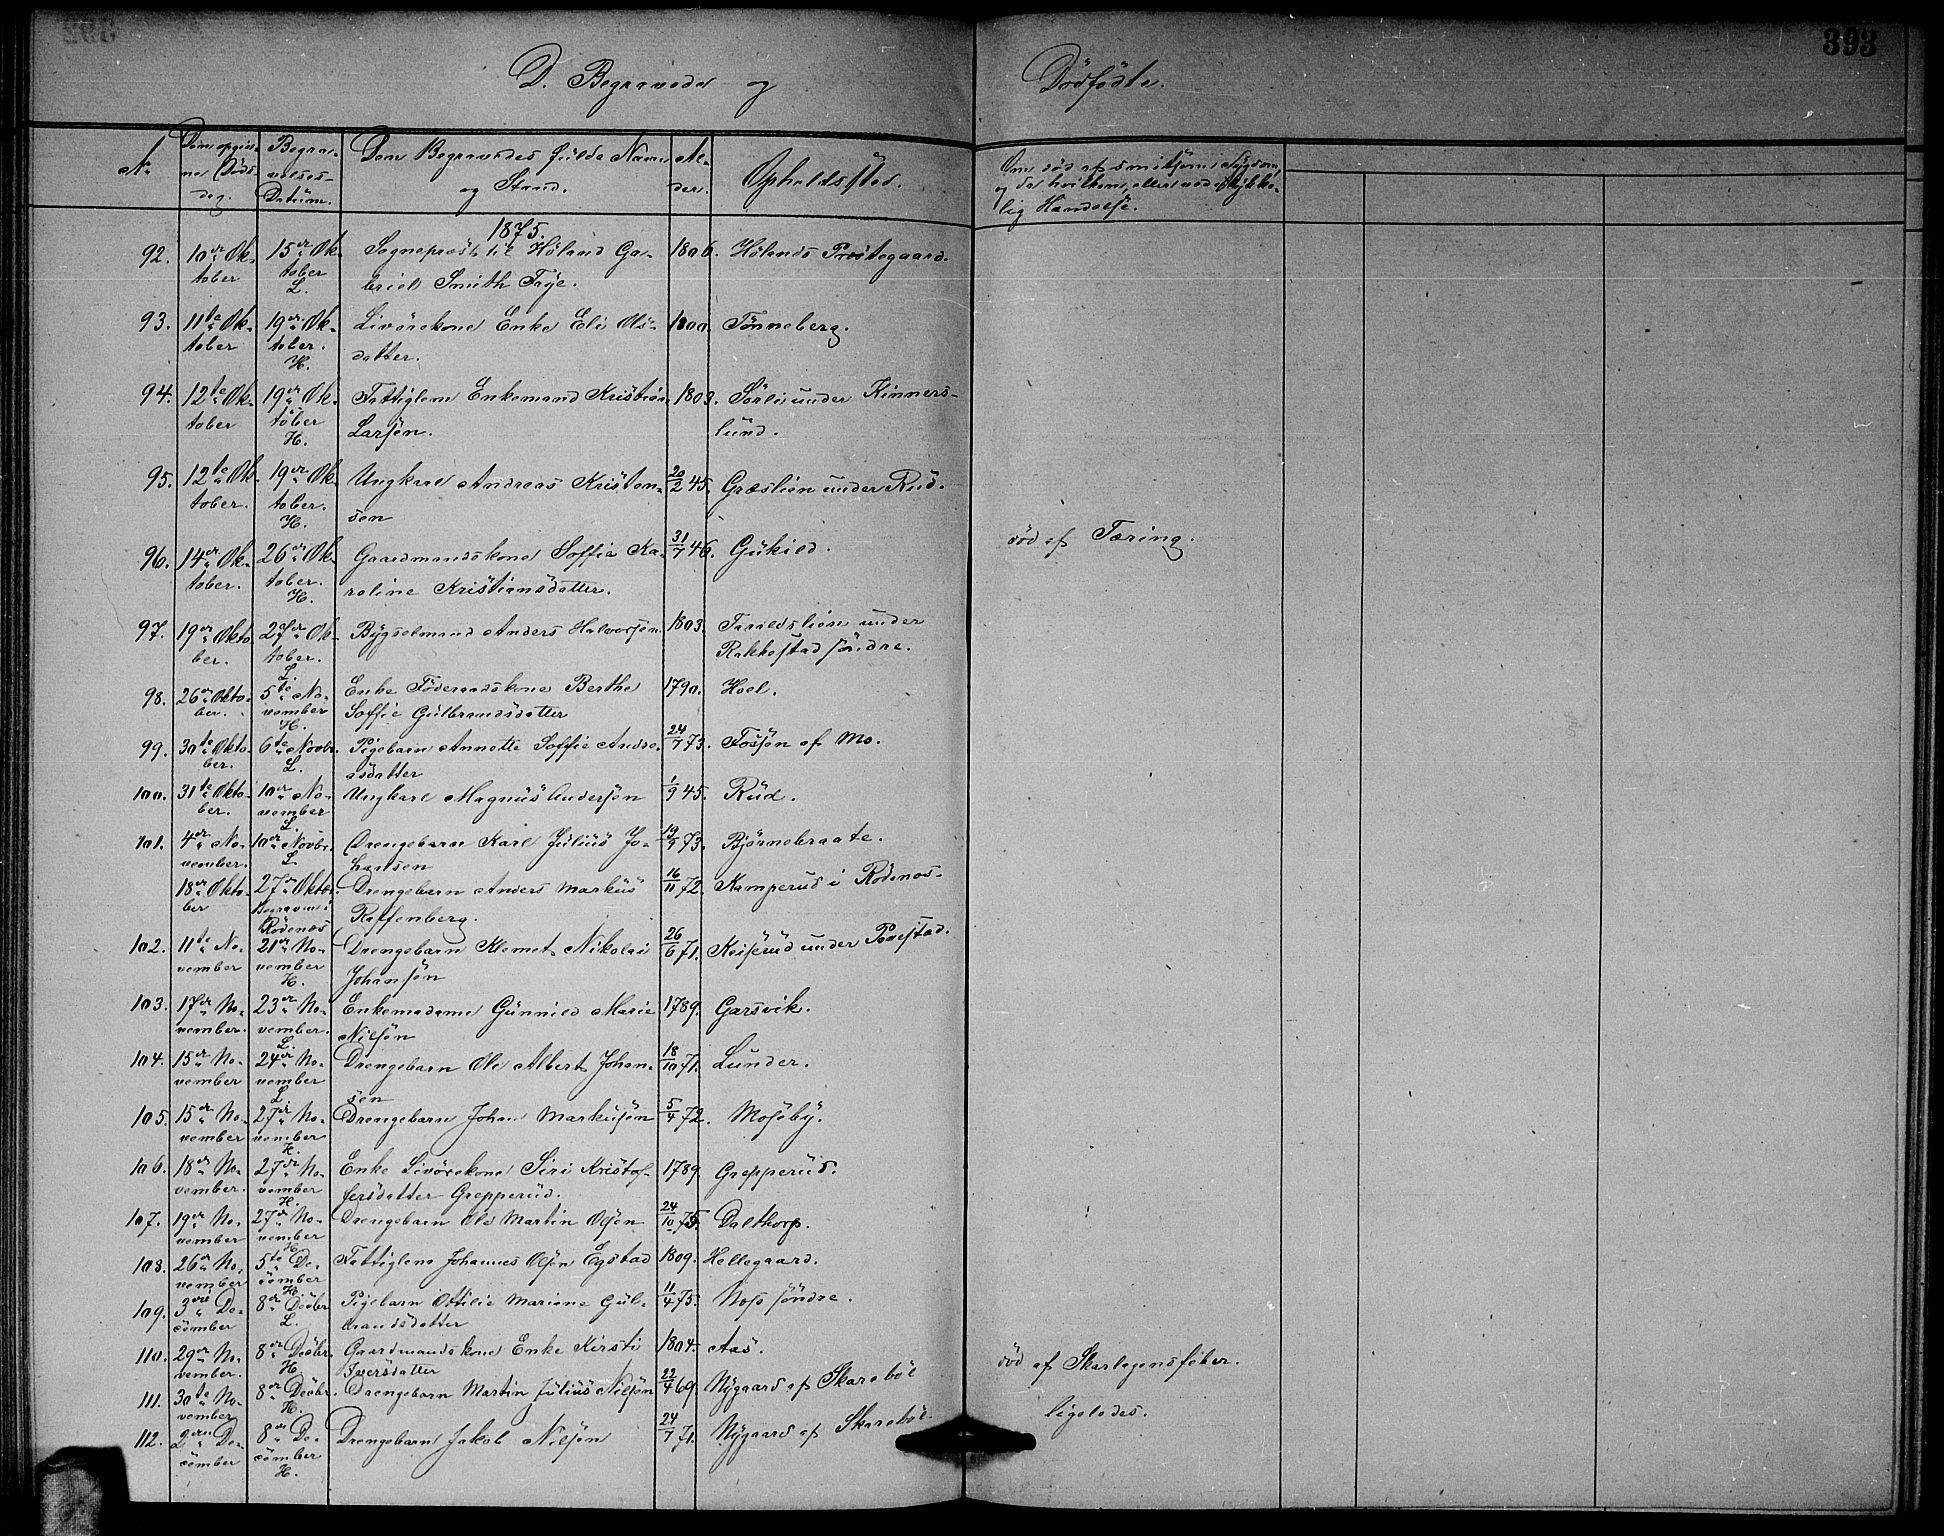 393
D. Begravede og Dødfødte.
No
Den opgivne Døds-dag.
Begravelses-Datum.
Den Begravedes fulde Navn og Stand.
Alder.
Opholdssted.
Om død af smitsom Sygdom, og da hvilken, eller ved ulykkelig Hændelse.
1875.
92. 10de Oktober 15de Oktober L. Sogneprest til Høland Gabriel Smith Faye. 1806. Hølands Prestegaard.
93. 11te Oktober 19de Oktober. H. Livørekone Enke Eli Olsdatter. 1800. Tønneberg.
94. 12te Oktober 19de Oktober H. Fattiglem Enkemand Kristian Larsøn. 1803. Sørli under Kinnerslund.
95. 12te Oktober. 19de Oktober. H. Ungkarl Andreas Kristensen 20/2 45. Græslien under Rud.
96. 14de Oktober. 26de Oktober. H. Gaardmandskone Soffie Karoline Kristiansdatter. 31/7 46. Gukild. død af Tæring.
97. 19de Oktober. 27de Oktober. L. Bygselmand Anders Halvorsøn 1803. Taraldslien under Rakkestad søndre.
98. 26de Oktober. 5te November H. Enke Føderaadskone Berthe Soffie Gulbrandsdatter 1790. Hoel.
99. 30te Oktober. 6te Novbr. L. Pigebarn Annette Soffie Andreasdatter 24/7 73. Fossen af Mo.
100. 31te Oktober. 10de November L. Ungkarl Magnus Andersøn 1/9 45. Rud.
101. 4de November. 10de Novbr. L. Drengebarn Karl Julius Johansen 19/9 73. Bjørnebraate.
18de Oktober 27de Oktbr. Begravet i Rødenes Drengebarn Anders Markus Raffenberg. 16/11 72. Kamperud i Rødenes
102. 11te November 21de November H. Drengebarn Klemet Nikolai Johansøn 26/6 71. Kriserud under
103. 17de November. 23de November. L. Enkemadame Gunnild Marie Nilsøn 1789. Garsvik.
104. 15de November 24de November L. Drengebarn Ole Albert Johansen 18/10 71. Lunder.
105. 15de November 27de November H. Drengebarn Johan Markusøn 5/4 72. Moseby.
106. 18de November. 27de November H. Enke Livørekone Siri Kristoffersdatter Grepperud. 1789 Grepperud.
107. 19de November 27de November H. Drengebarn Ole Martin Olsøn 24/10 75. Daltorp.
108. 26de November 5te December H. Fattiglem Johannes Olsøn Egstad 1809. Hellegaard.
109. 3die December 8de Decbr L. Pigebarn Ottilie Mariane Gulbrandsdatter 11/4 75. Nøss søndre.
110. 29de November. 8de Decbr. H. Gaardmandskone Enke Kirsti Iversdatter 1804. Aas.
111. 30te November 8de Decbr. H. Drengebarn Martin Julius Nilsøn 22/4 69. Nygaard af Skarebøl død af Skarlagensfeber.
112. 2den December 8de December H. Drengebarn Jakob Nilsøn 24/7 71. Nygaard af Skarebøl. ligeledes.